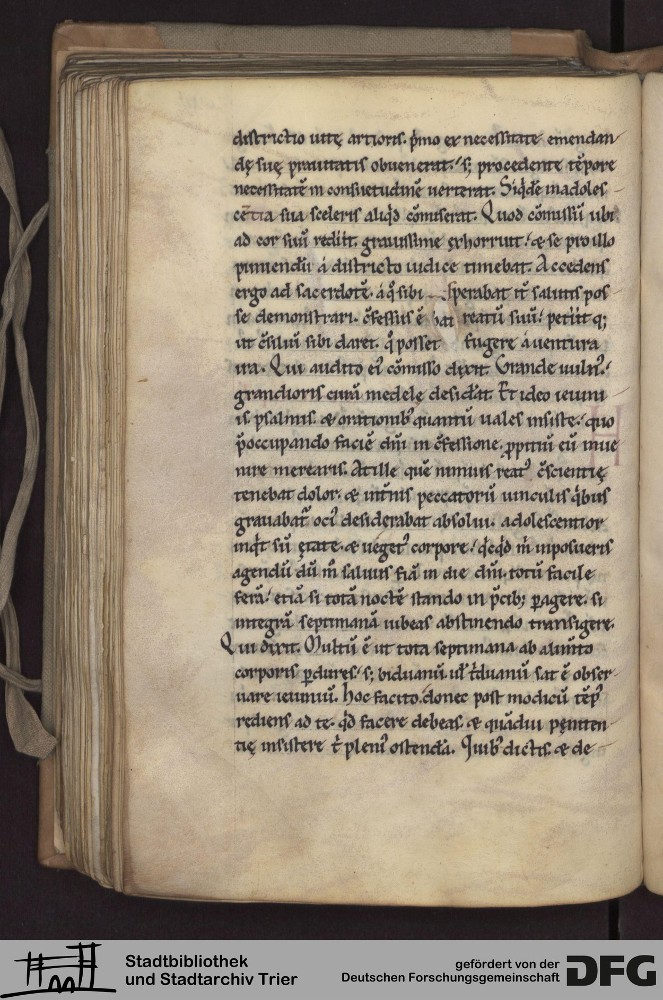 districtio uitę artioris. p̄mo ex necessitate emendan
dę suę prauitatis obuenerat. s; procedente tēpore
necessitatē in consuetudinē uerterat. Siq̇dē in adoles
cētia sua sceleris aliq̇d cōmiserat. Quod cōmissū ubi
ad cor suū rediit. grauissime exhorruit. & se pro illo
puniendū á districto iudice timebat. Accedens
ergo ad sacerdotē. á q̊ sibi sperabat it̄ salutis pos
se demonstrari. c̄fessus ē reatū suū. petiit q;
ut c̄siliū sibi daret. q̊ posset fugere á uentura
ira. Qui audito ei᾽ cōmisso dixit. Grande uuln᾽.
grandioris curā medele desid̄at. Et ideo ieiuni
is. psalmis. & orationib᾽ quantū uales insiste. quo
p̄occupando faciē dn̄i in c̄fessione. ꝓpitiū eū inue
nire merearis. At ille quē nimius reat᾽ c̄scientię
tenebat dolor. & int̄nis peccatorū uinculis q̇bus
grauabat᾽ oci᾽ desiderabat absolui. adolescentior
inq̇t sū ętate. & ueget᾽ corpore. q̇cq̇d ṁ imposueris
agendū dū m̊ saluus fiā in die dn̄i. totū facile
ferā. etiā si totā noctē stando in p̄cib; ꝑagere. si
integrā septimanā iubeas abstinendo transigere.
Qui dixit. Multū ē ut tota septimana ab alimto
corporis ꝑdures. s; biduanū. ul̄ t̄duanū sat ē obser
uare ieiuniū. Hoc facito. donec post modicū tēp᾽
rediens ad te. q̇d facere debeas. & quādiu pęniten
tię insistere t̄ pleni᾽ ostendā. Quib᾽ dictis. & de
Stadtbibliothek
und Stadtarchiv Trier
gefördert von der
Deutschen Forschungsgemeinschaft
DFG